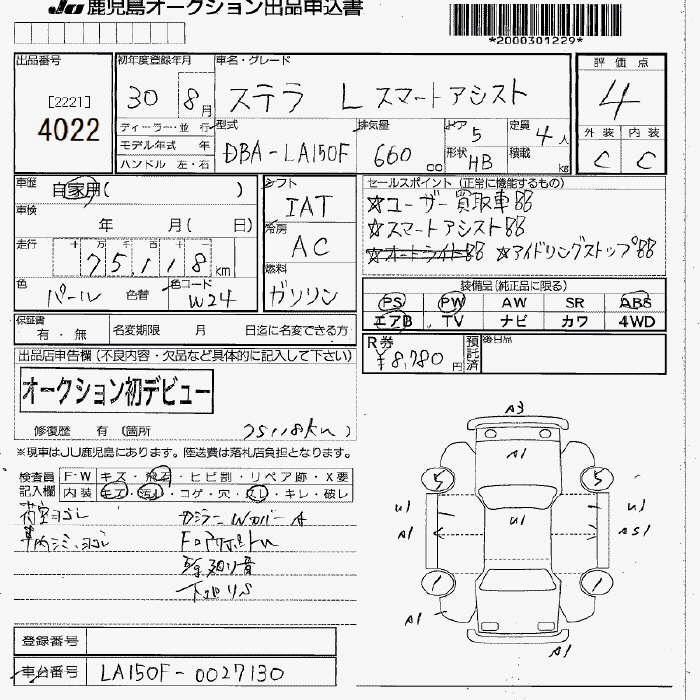 JU 鹿児島オークション出品申込書
*2000301229*
出品番号
[2221]
4022
初年度登録年月
30 8月
車名・グレード
ステラ L スマートアシスト
評価点
4
外装 内装
C C
ディーラー・並行
モデル年式 年
ハンドル 左・右
型式
DBA-LA150F
排気量
660 cc
ドア 5
形状 HB
定員 4人
積載 kg
車歴
自家用( )
車検
年 月( 日)
走行
十万千百十一
75,118 km
色
パール 色替
色コード
W24
シフト
IAT
冷房
AC
燃料
ガソリン
セールスポイント(正常に機能するもの)
☆ユーザー買取車
☆スマートアシスト
☆オートライト ☆アイドリングストップ
装備品(純正品に限る)
PS PW AW SR ABS
エアB TV ナビ カワ 4WD
保証書
有・無
名変期限 月 日迄に名変できる方
R券
¥8,780円
預託済
後日品
出品店申告欄(不良内容・欠品など具体的に記入して下さい)
オークション初デビュー
修復歴 有(箇所 75118km)
※現車はJU鹿児島にあります。陸送費は落札店負担となります。
検査員記入欄
F・W キズ・飛石・ヒビ割・リペア跡・X要
内装 キズ・汚レ・コゲ・穴・スレ・キレ・破レ
荷室ヨゴレ
車内シミ、ヨゴレ
下廻リサビ
A3
A1
5 5
U1 U1 U1
A1 AS1
1 1
A1
A1
登録番号
車台番号
LA150F-0027130